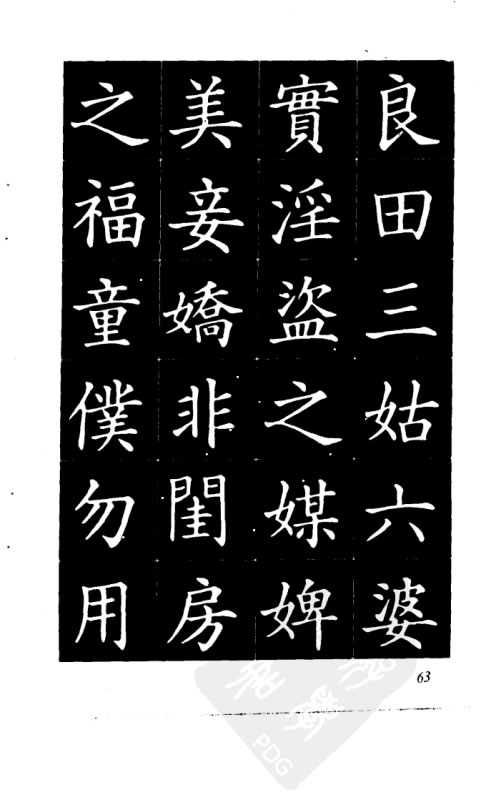 良田三姑六婆
實淫盜之媒婢
美妾嬌非閨房
之福童僕勿用
63
PDG